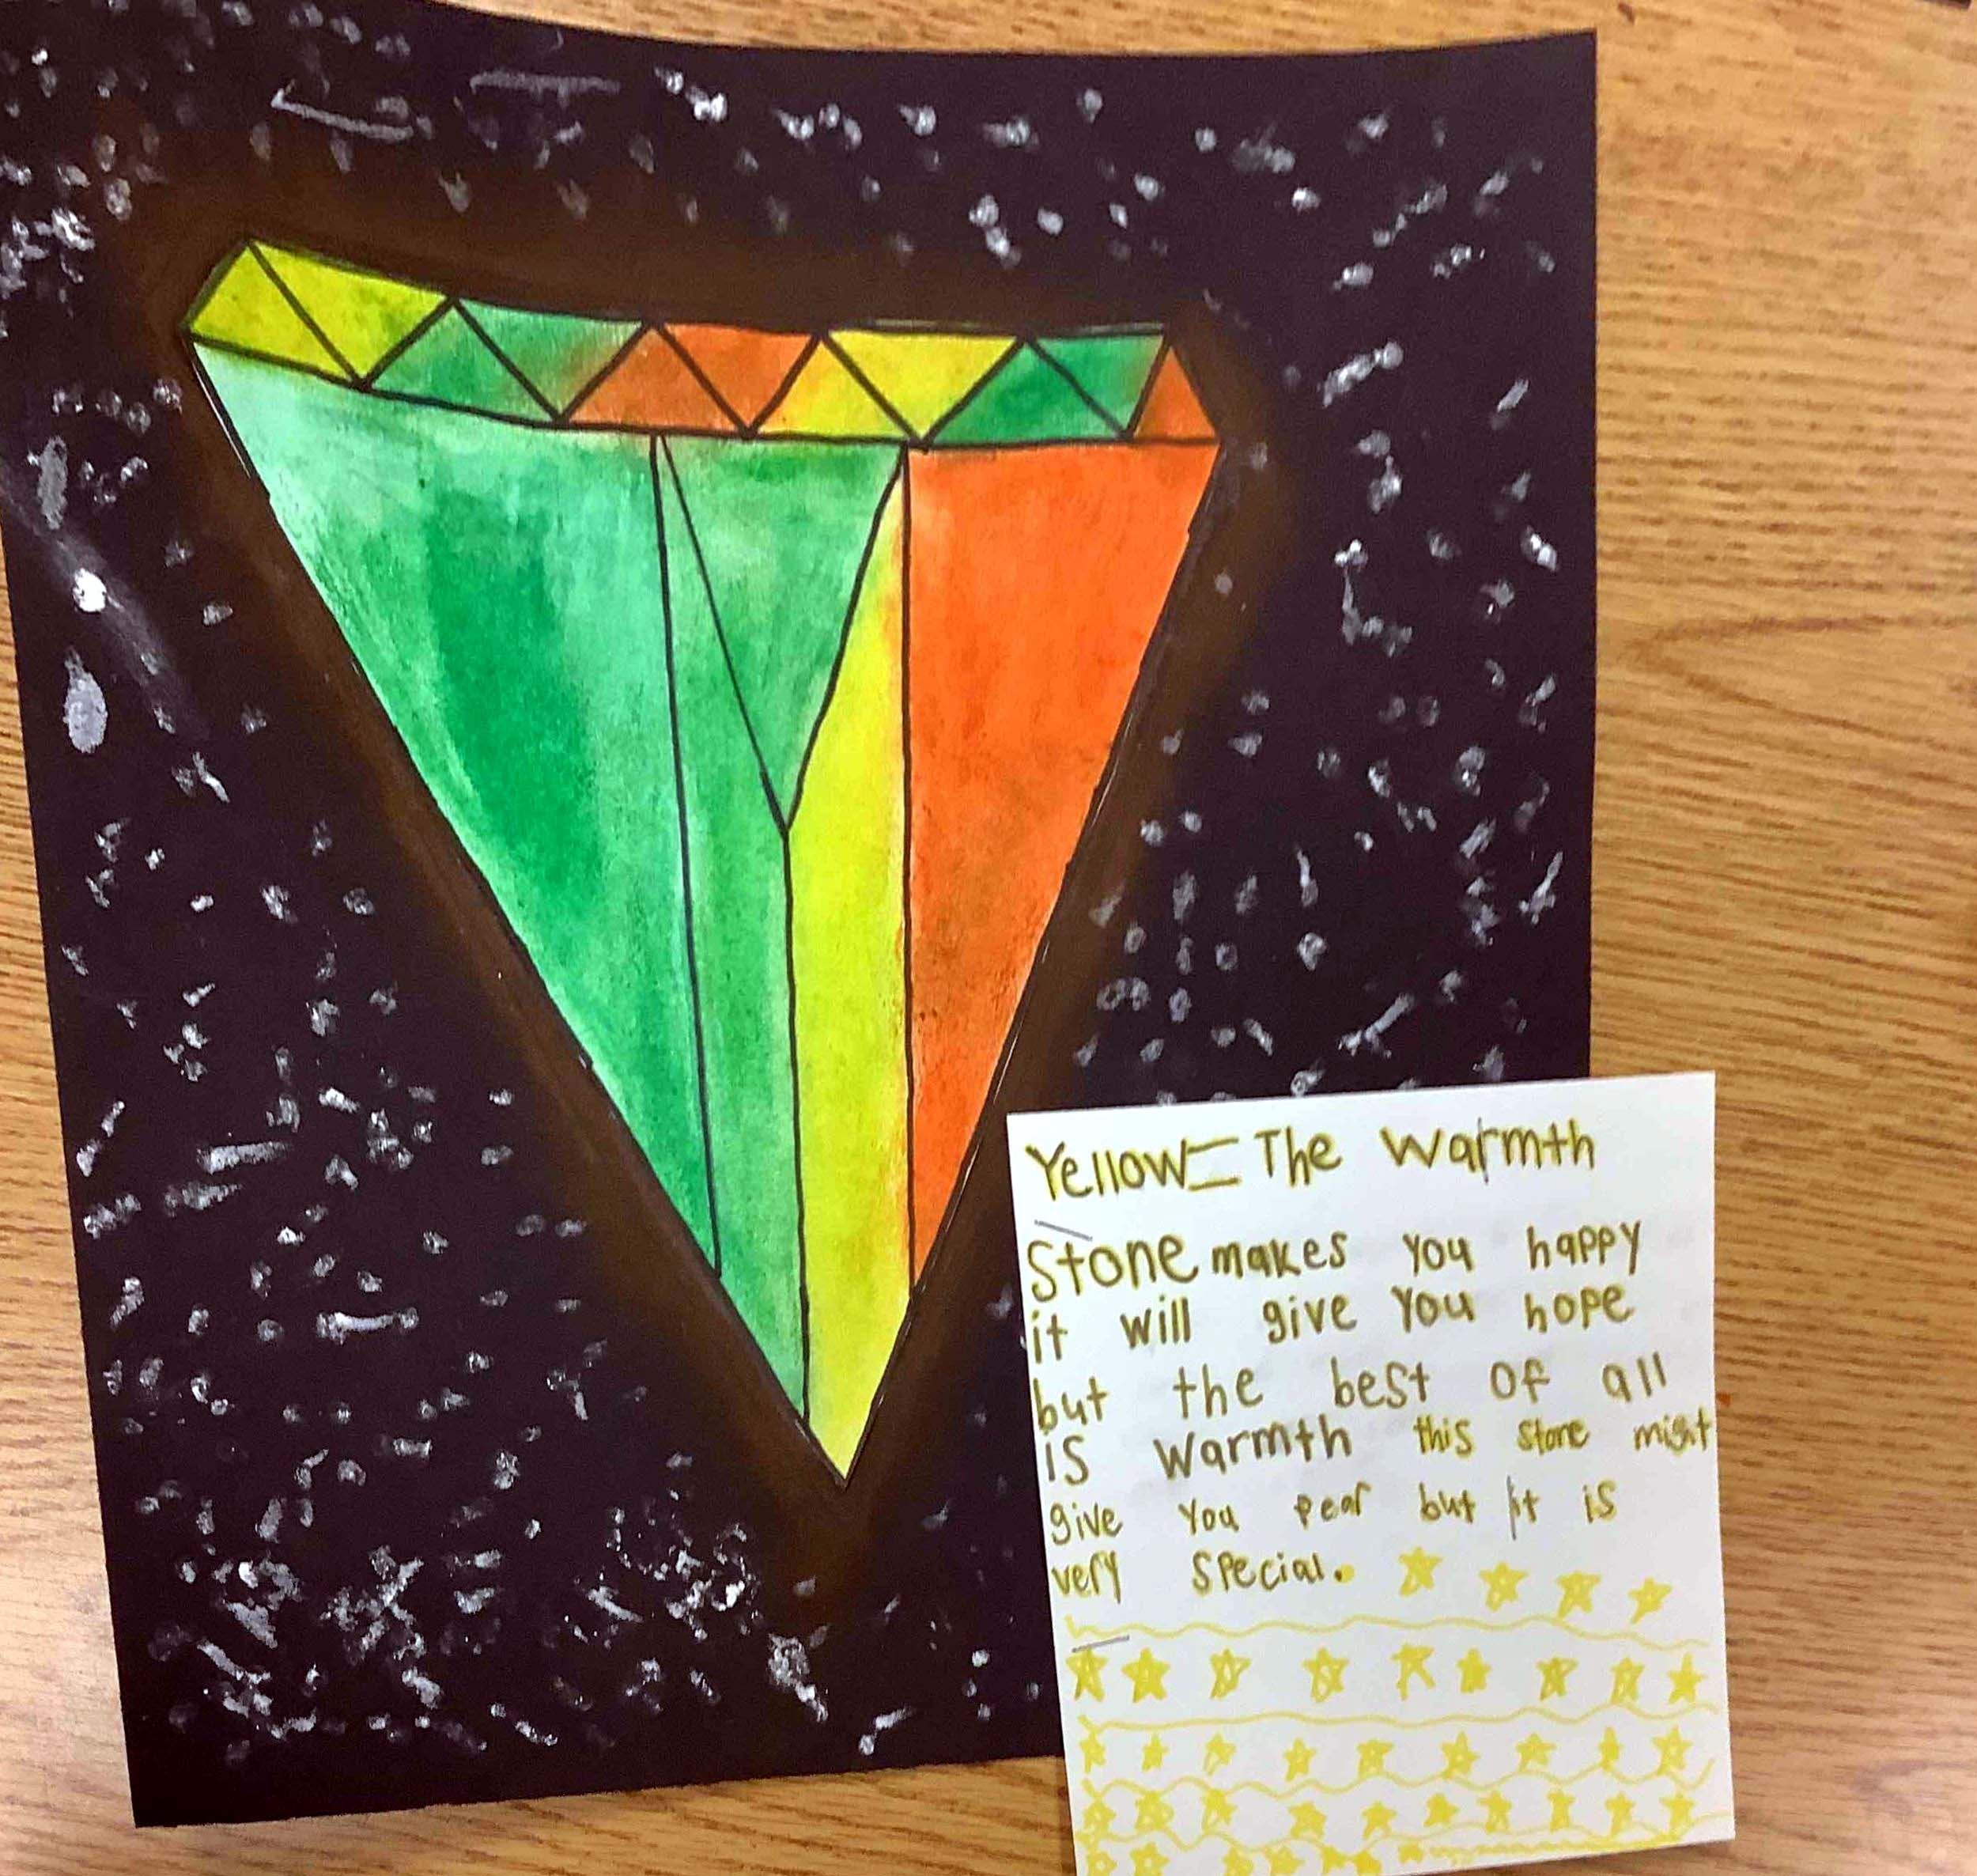 Yellow= The Warmth
Stone makes you happy
it will give you hope
but the best of all
is warmth this stone might
give you pear but it is
very special.